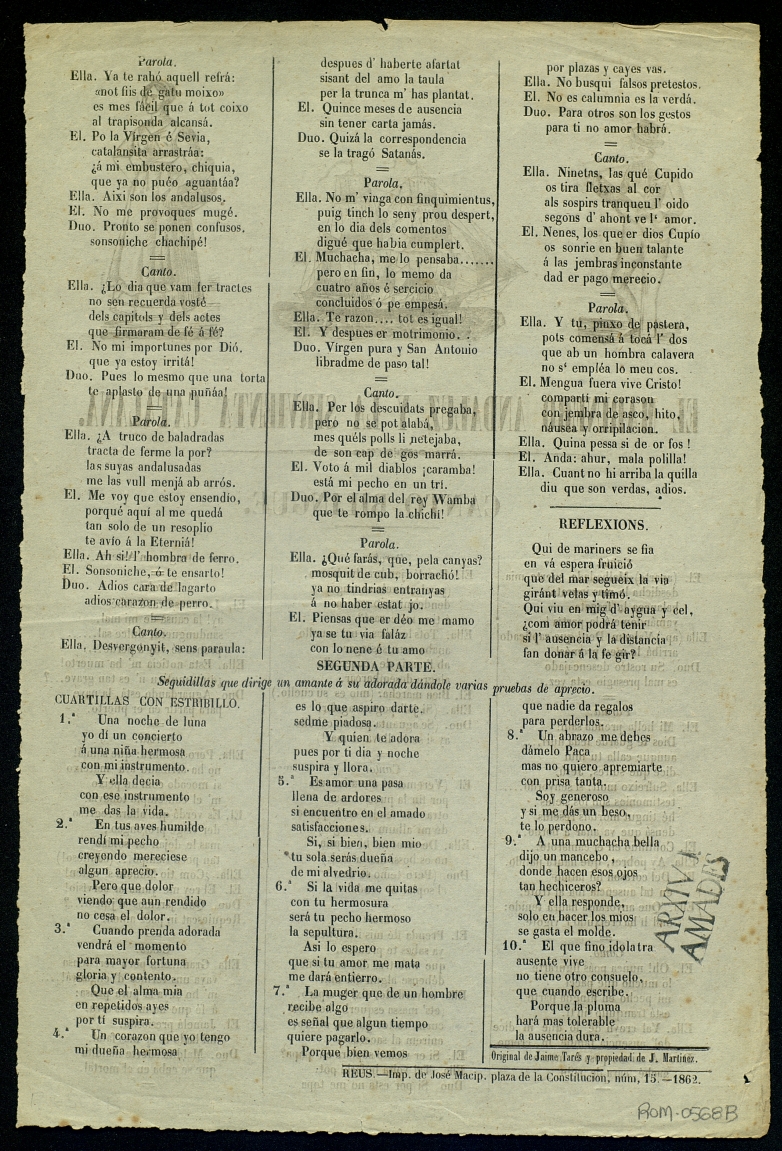 Parola.
Ella. Ya te rahó aquell refrá:
«not fiis de gatu moixo»
es mes fácil que á tot coixo
al trapisonda alcansá.
El. Po la Vírgen é Sevia,
catalansita arrastráa:
¿á mi embustero, chiquia,
que ya no puéo aguantáa?
Ella. Aixi son los andalusos.
El. No me provoques mugé.
Duo. Pronto se ponen confusos.
sonsoniche chachipé!
Canto.
Ella. ¿Lo dia que vam fer tractes
no sen recuerda vosté
dels capitols y dels actes
que firmaram de fé á fé?
El. No mi importunes por Dió,
que ya estoy irritá!
Duo. Pues lo mesmo que una torta
te aplasto de una puñáa!
Parola.
Ella. ¿A truco de baladradas
tracta de ferme la por?
las suyas andalusadas
me las vull menjá ab arrós.
El. Me voy que estoy ensendio,
porqué aquí al me quedá
tan solo de un resoplio
te avío á la Eterniá!
Ella. Ah si! l' hombra de ferro.
El. Sonsoniche, ó te ensarto!
Duo. Adios cara de lagarto
adios carazon de perro.
Canto.
Ella. Desvergonyit, sens paraula:
despues d' haberte afartat
sisant del amo la taula
per la trunca m' has plantat.
El. Quince meses de ausencia
sin tener carta jamás.
Duo. Quizá la correspondencia
se la tragó Satanás.
Parola.
Ella. No m' vinga con finquimientus,
puig tinch lo seny prou despert,
en lo dia dels comentos
digué que habia cumplert.
El. Muchacha, me lo pensaba.......
pero en fin, lo memo da
cuatro años é sercicio
concluidos ó pe empesá.
Ella. Te razon.... tot es igual!
El. Y despues er motrimonio. .
Duo. Vírgen pura y San Antonio
libradme de paso tal!
Canto.
Ella. Per los descuidats pregaba,
pero no se pot alabá,
mes quéls polls li netejaba,
de son cap de gos marrá.
El. Voto á mil diablos ¡caramba!
está mi pecho en un tri.
Duo. Por el alma del rey Wamba
que te rompo la chichí!
Parola.
Ella. ¿Qué farás, que, pela canyas?
mosquit de cub, borrachó!
ya no tindrias entranyas
á no haber estat jo.
El. Piensas que er déo me mamo
ya se tu via faláz
con lo nene é tu amo
por plazas y cayes vas.
Ella. No busqui falsos pretestos.
El. No es calumnia es la verdá.
Duo. Para otros son los gestos
para ti no amor habrá.
Canto.
Ella. Ninetas, las qué Cupido
os tira fletxas al cor
als sospirs tranqueu l' oido
segons d' ahont ve l' amor.
El. Nenes, los que er dios Cupío
os sonrie en buen talante
á las jembras inconstante
dad er pago merecio.
Parola.
Ella. Y tu, pinxo de pastera,
pots comensá á tocá l' dos
que ab un hombra calavera
no s' empléa lo meu cos.
El. Mengua fuera vive Cristo!
comparti mi corason
con jembra de asco, hito,
náusea y orripilacion.
Ella. Quina pessa si de or fos!
El. Anda: ahur, mala polilla!
Ella. Cuant no hi arriba la quilla
diu que son verdas, adios.
REFLEXIONS.
Qui de mariners se fia
en vá espera fruició
que del mar segueix la via
giránt velas y timó.
Qui viu en mig d' aygua y cel,
¿com amor podrá tenir
si l' ausencia y la distancia
fan donar á la fe gir?
SEGUNDA PARTE.
Seguidillas que dirige un amante á su adorada dándole varias pruebas de aprecio.
CUARTILLAS CON ESTRIBILLO.
1.ª Una noche de luna
yo dí un concierto
á una niña hermosa
con mi instrumento.
Y ella decia
con ese instrumento
me das la vida.
2.ª En tus aves humilde
rendí mi pecho
creyendo mereciese
algun aprecio.
Pero que dolor
viendo que aun rendido
no cesa el dolor.
3.ª Cuando prenda adorada
vendrá el momento
para mayor fortuna
gloria y contento.
Que el alma mia
en repetidos ayes
por tí suspira.
4.ª Un corazon que yo tengo
mi dueña hermosa
es lo que aspiro darte,
sedme piadosa.
Y quien te adora
pues por ti dia y noche
suspira y llora.
5.ª Es amor una pasa
llena de ardores
si encuentro en el amado
satisfacciones.
Si, si bien, bien mio
tu sola serás dueña
de mi alvedrio.
6.ª Si la vida me quitas
con tu hermosura
será tu pecho hermoso
la sepultura.
Asi lo espero
que si tu amor me mata
me dará entierro.
7.ª La muger que de un hombre
recibe algo
es señal que algun tiempo
quiere pagarlo.
Porque bien vemos
que nadie da regalos
para perderlos.
8.ª Un abrazo me debes
dámelo Paca
mas no quiero apremiarte
con prisa tanta.
Soy generoso
y si me dás un beso,
te lo perdono.
9.ª A una muchacha bella
dijo un mancebo,
donde hacen esos ojos
tan hechiceros?
Y ella responde,
solo en hacer los mios
se gasta el molde.
10.ª El que fino idolatra
ausente vive
no tiene otro consuelo,
que cuando escribe.
Porque la pluma
hará mas tolerable
la ausencia dura.
ARXIU
AMADES
Original de Jaime Tarés y propiedad de J. Martinez.
REUS.—Imp. de José Macip, plaza de la Constitucion, núm, 15.—1862.
ROM-0568B